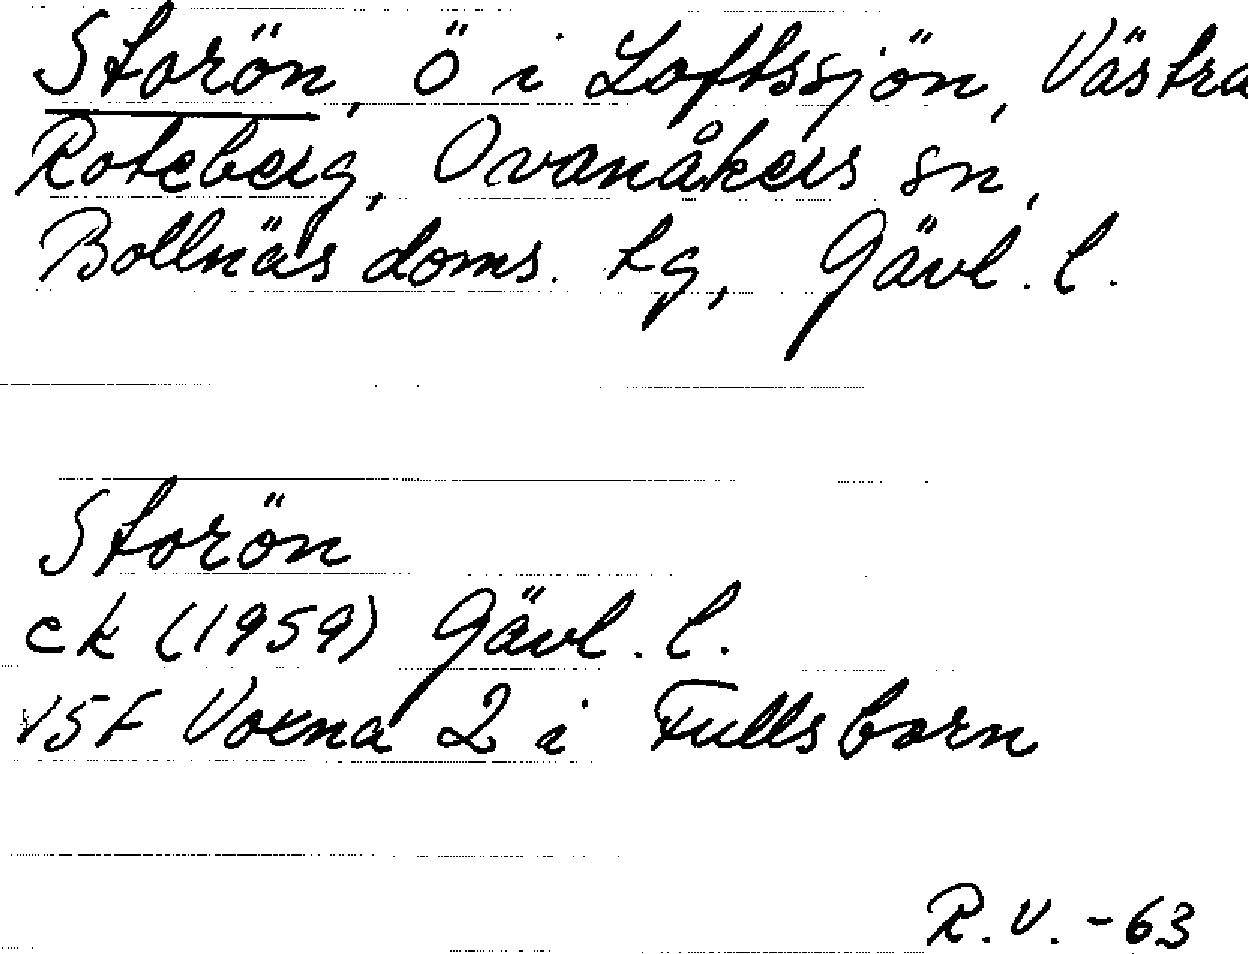 Storön, Ö i Loftssjön, Västra
Roteberg, Ovanåkers sn,
Bollnäs doms. tg, Gävl. l.
Storön
ek (1959) Gävl. l.
15F Voxna 2 i
R.V. -63